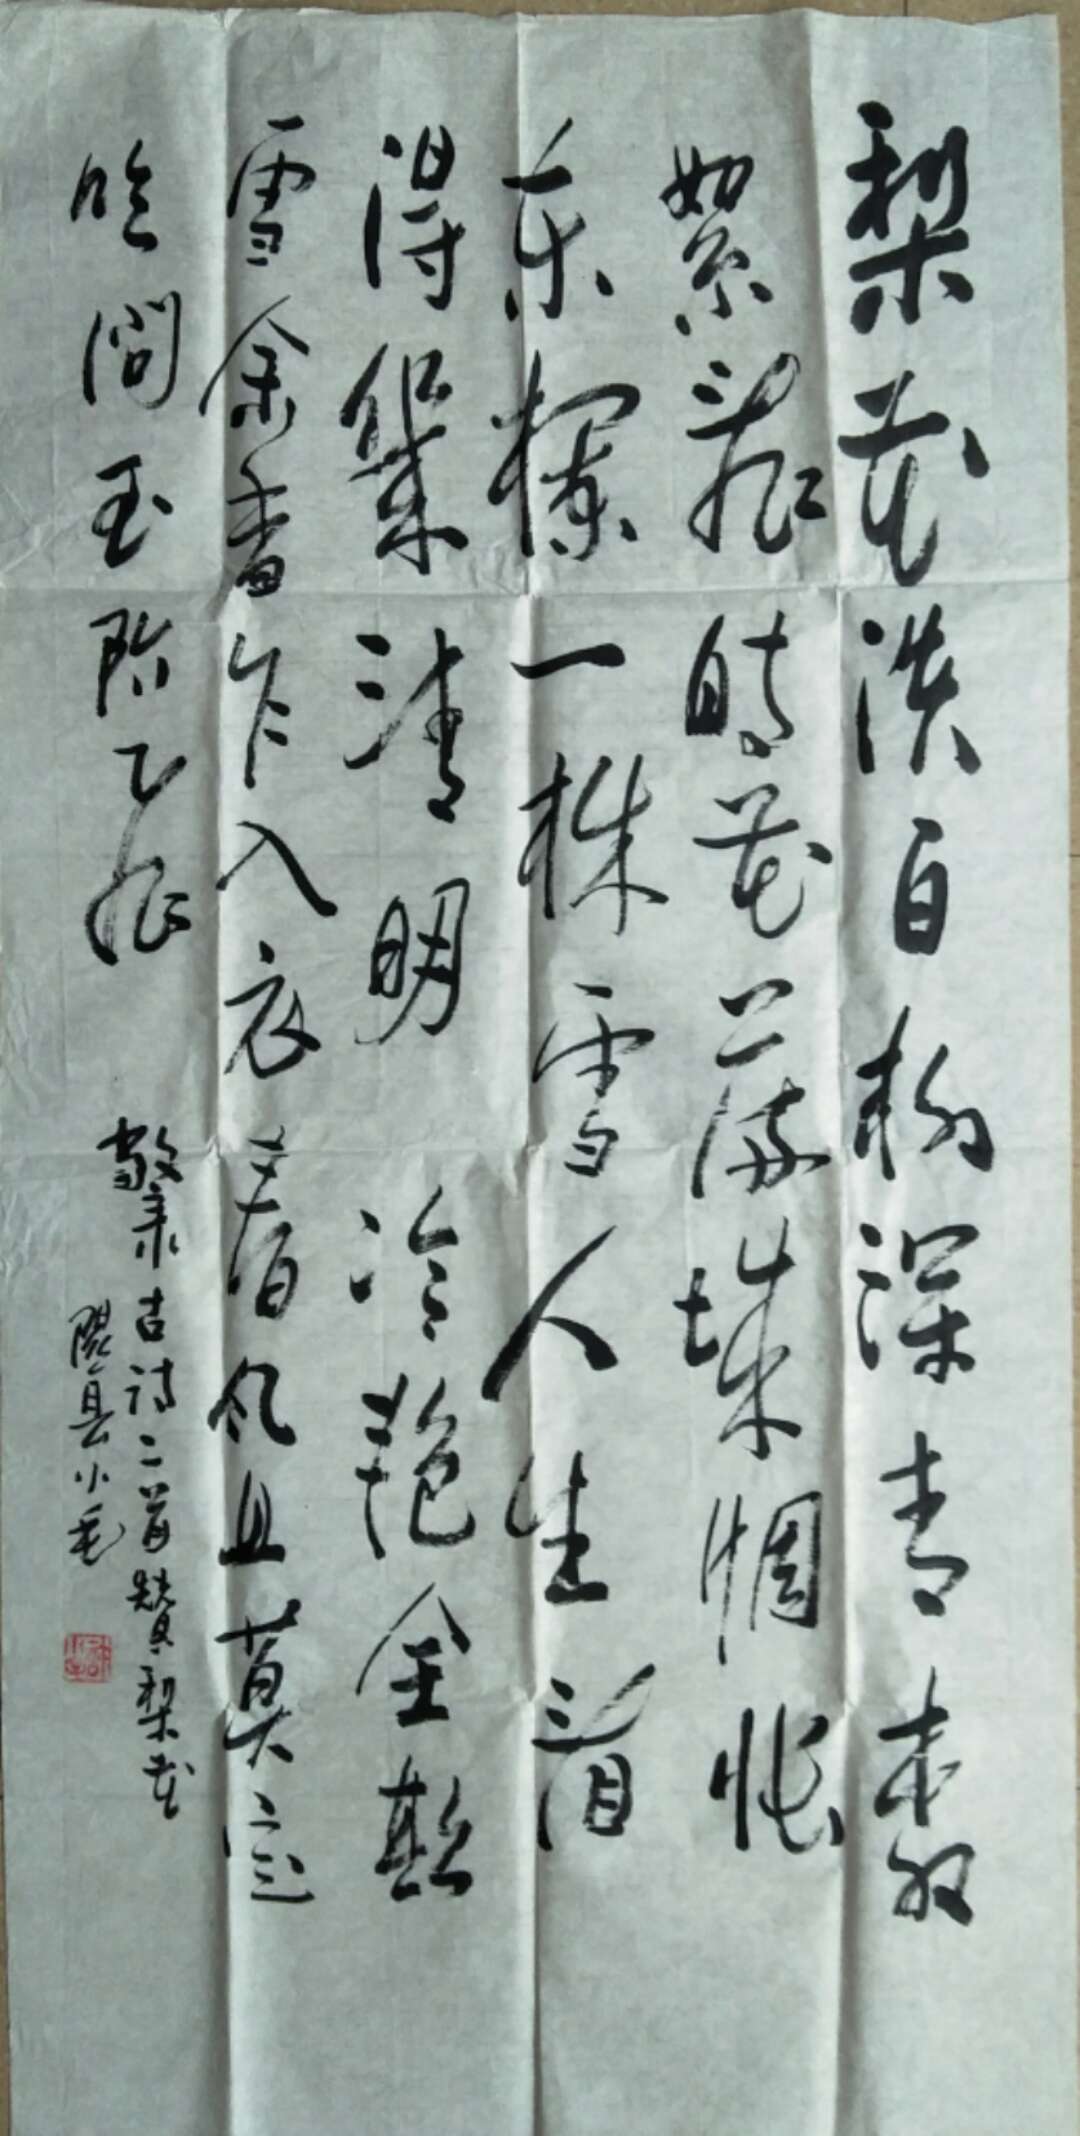 梨花淡白柳深青柳
絮飛時花滿城惆悵
东欄一株雪人生看
得幾清明 冷艳全欺
雪余香乍入衣春风且莫定
吹向玉阶飛
敬录古诗二首赞梨花
隰县小毛